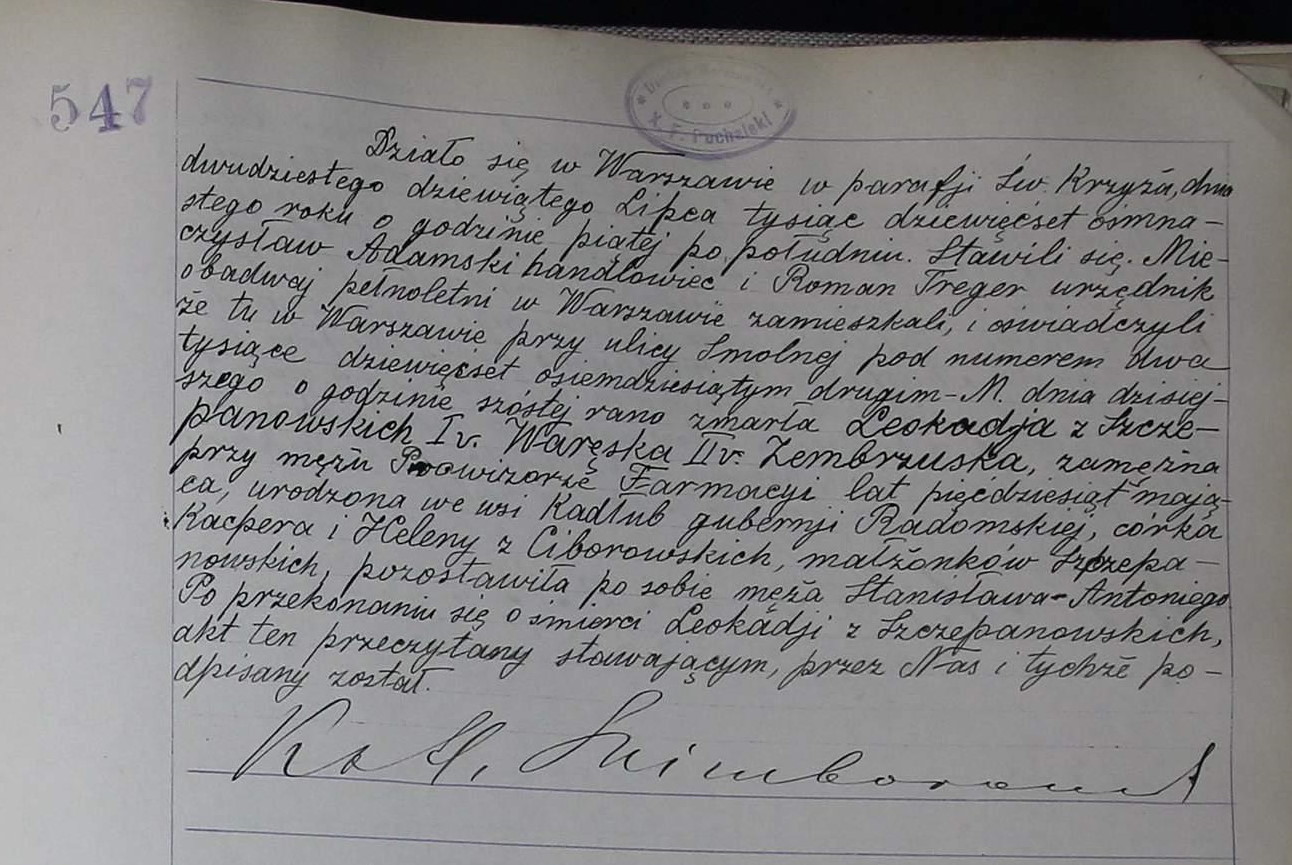 547
X. F. Puchalski
Działo się w Warszawie w parafji Św. Krzyża, dnia
dwudziestego dziewiątego Lipca tysiąc dziewięćset ośmna-
stego roku o godzinie piątej po południu. Stawili się. Mie-
czysław Adamski handlowiec i Roman Treger urzędnik
obadwaj pełnoletni w Warszawie zamieszkali, i oświadczyli
że tu w Warszawie przy ulicy Smolnej pod numerem dwa
tysiące dziewięćset osiemdziesiątym drugim-M. dnia dzisiej-
szego o godzinie szóstej rano zmarła Leokadja z Szcze-
panowskich I v. Waręska II v. Zembrzuska, zamężna
przy mężu Prowizorze Farmacyi lat pięćdziesiąt mają-
ca, urodzona we wsi Kadłub gubernji Radomskiej, córka
Kacpera i Heleny z Ciborowskich, małżonków Szczepa-
nowskich, pozostawiła po sobie męża Stanisława-Antoniego
Po przekonaniu się o śmierci Leokadji z Szczepanowskich,
akt ten przeczytany stawającym, przez Nas i tychże po-
dpisany został.